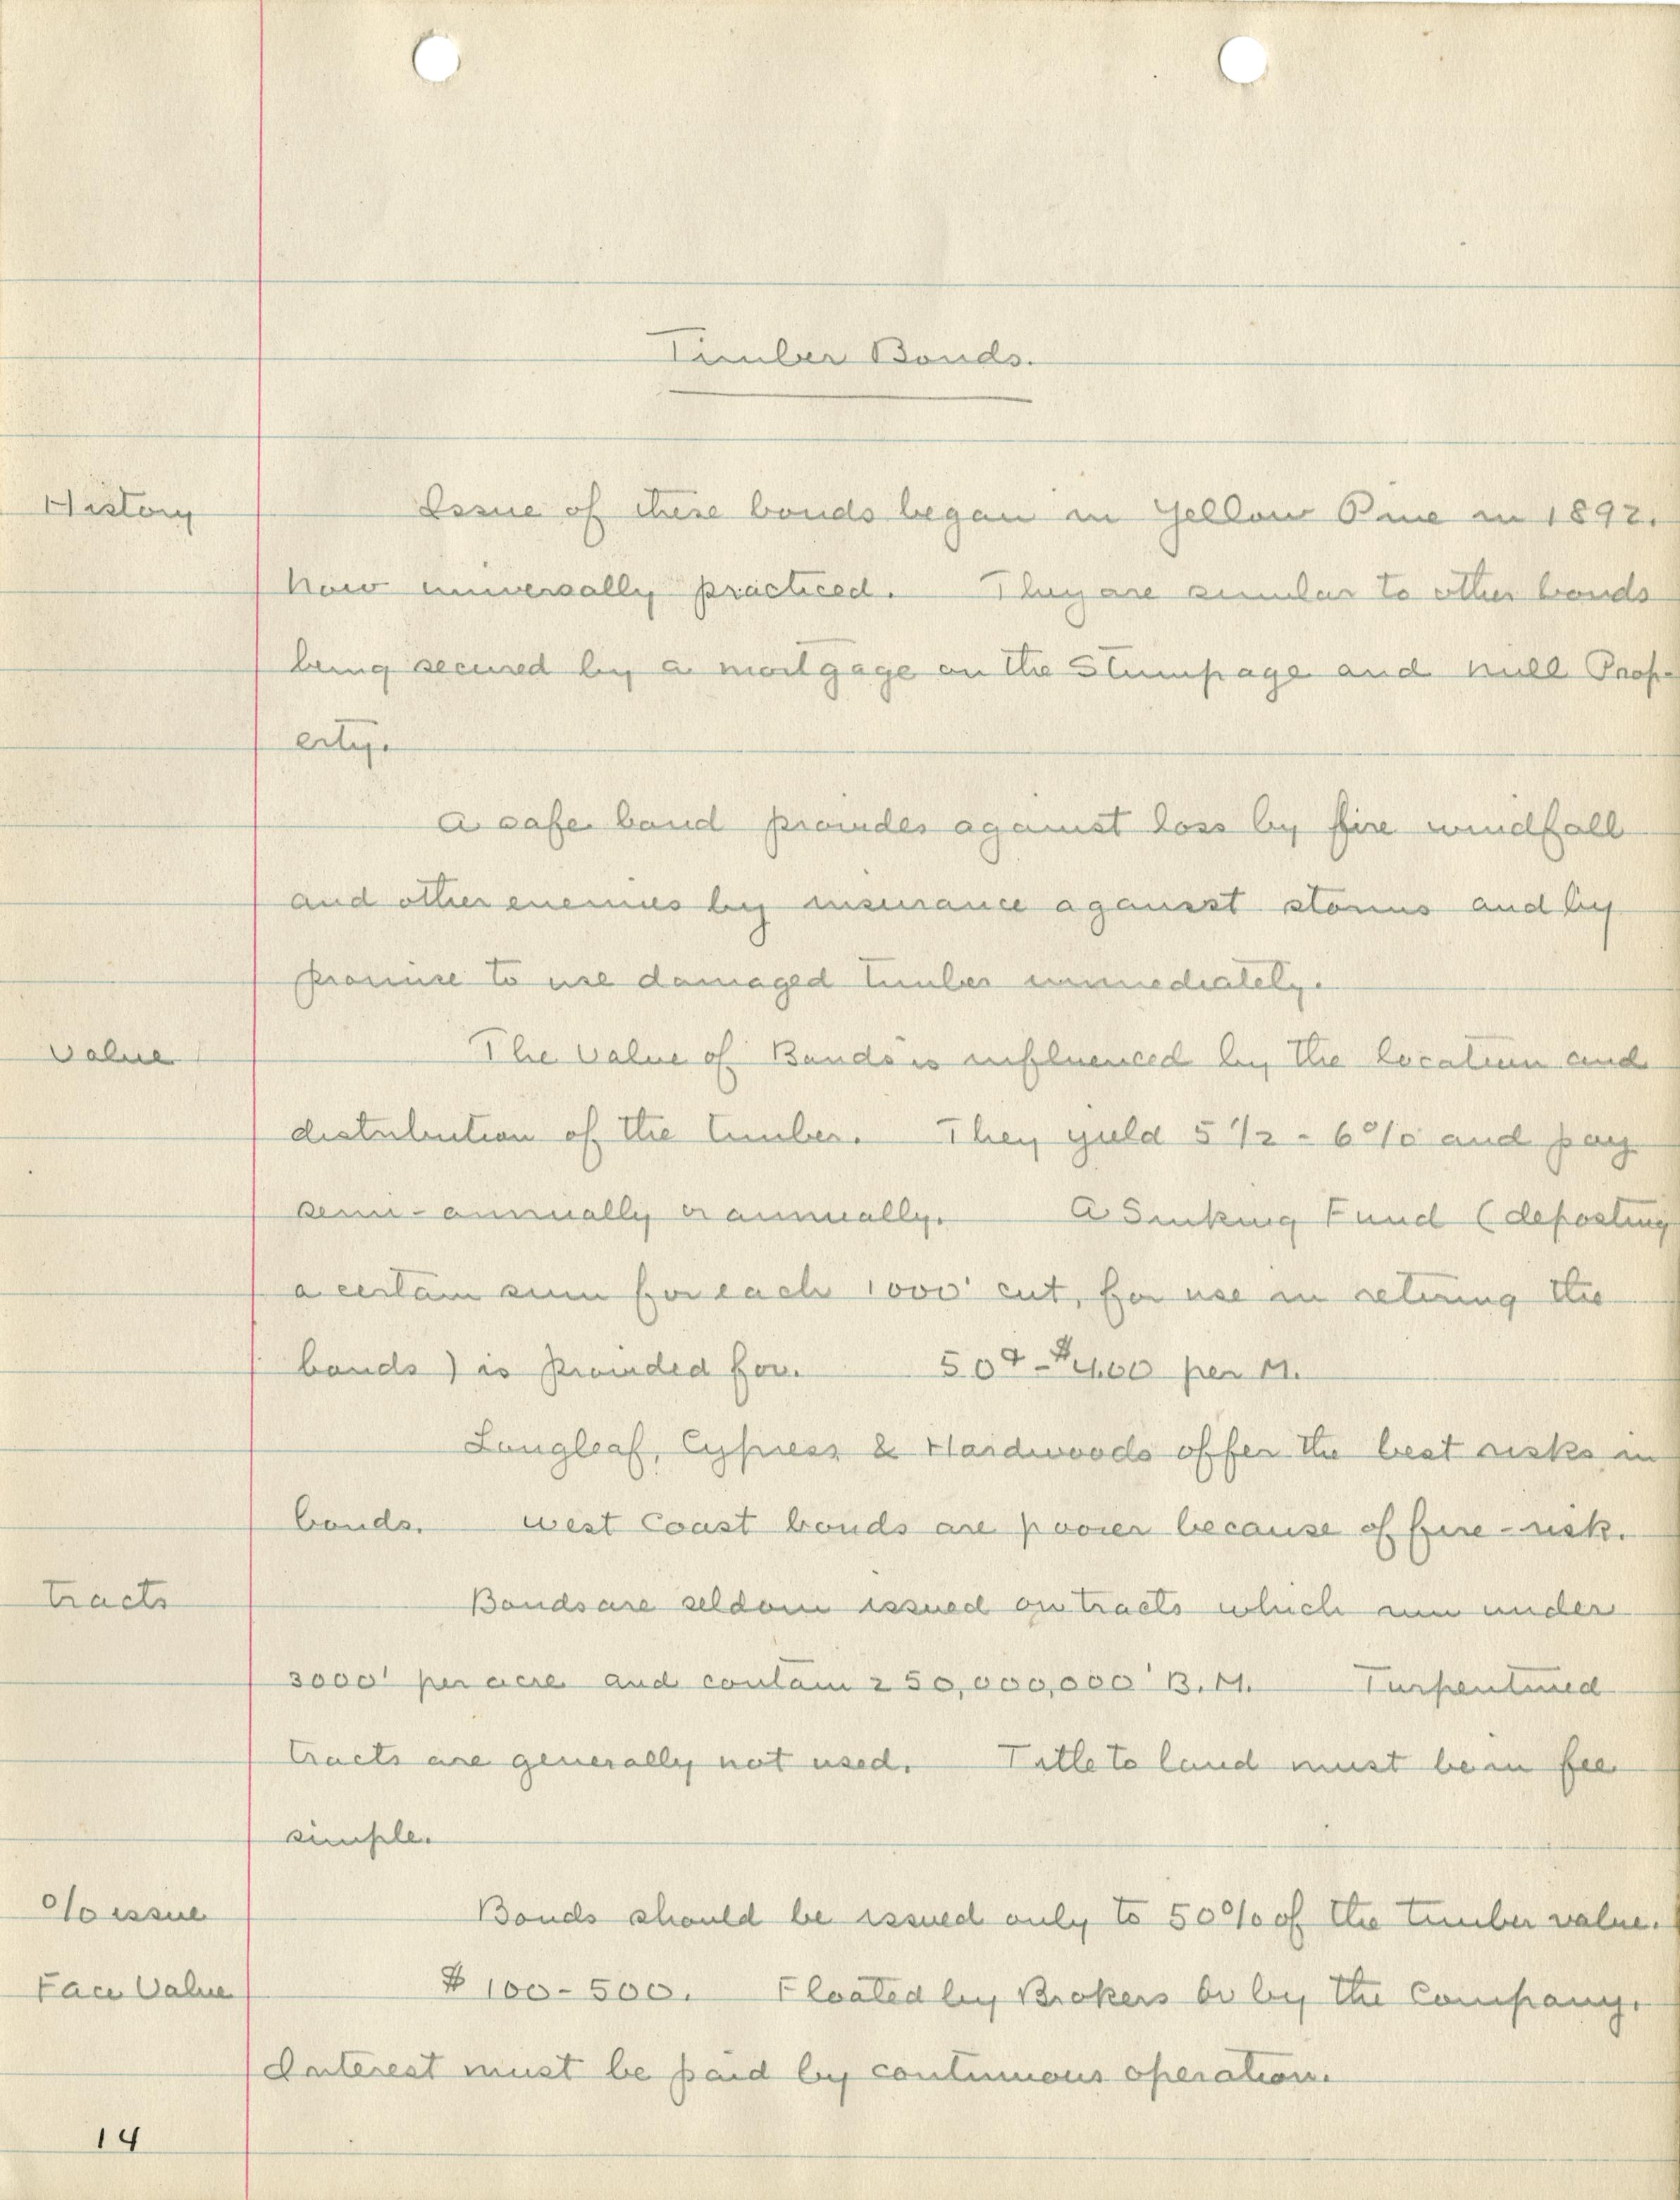 Timber Bonds.
History
Issue of these bonds began in Yellow Pine in 1892.
Now universally practiced. They are similar to other bonds
being secured by a mortgage on the Stumpage and mill Prop-
erty.
A safe bond provides against loss by fire windfall
and other enemies by insurance against storms and by
promise to use damaged timber immediately.
Value
The Value of Bonds is influenced by the location and
distribution of the timber. They yield 5 1/2 - 6% and pay
semi-annually or annually. A Sinking Fund (deposting
a certain sum for each 1000' cut, for use in retiring the
bonds) is Provided for. 50¢ - $4.00 per M.
Longleaf, Cypress & Hardwoods offer the best risks in
bonds. West Coast bonds are poorer because of fire-risk.
Tracts
Bonds are seldom issued on tracts which run under
3000' per acre and contain 250,000,000' B.M. Turpentined
tracts are generally not used. Title to land must be in fee
simple.
% issue
Bonds should be issued only to 50% of the timber value.
Face Value
$100-500. Floated by Brokers or by the Company.
Interest must be paid by continuous operation.
14